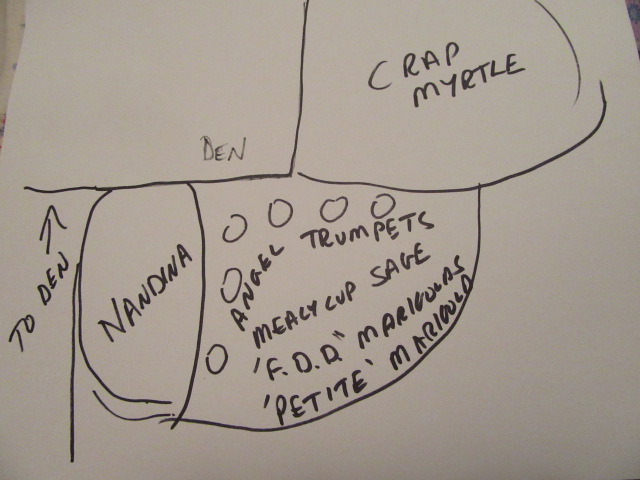 CRAP
MYRTLE
DEN
TO DEN
NANDINA
ANGEL TRUMPETS
MEALYCUP SAGE
'F.D.D." MARIGOLDS
'PETITE' MARIGOLD